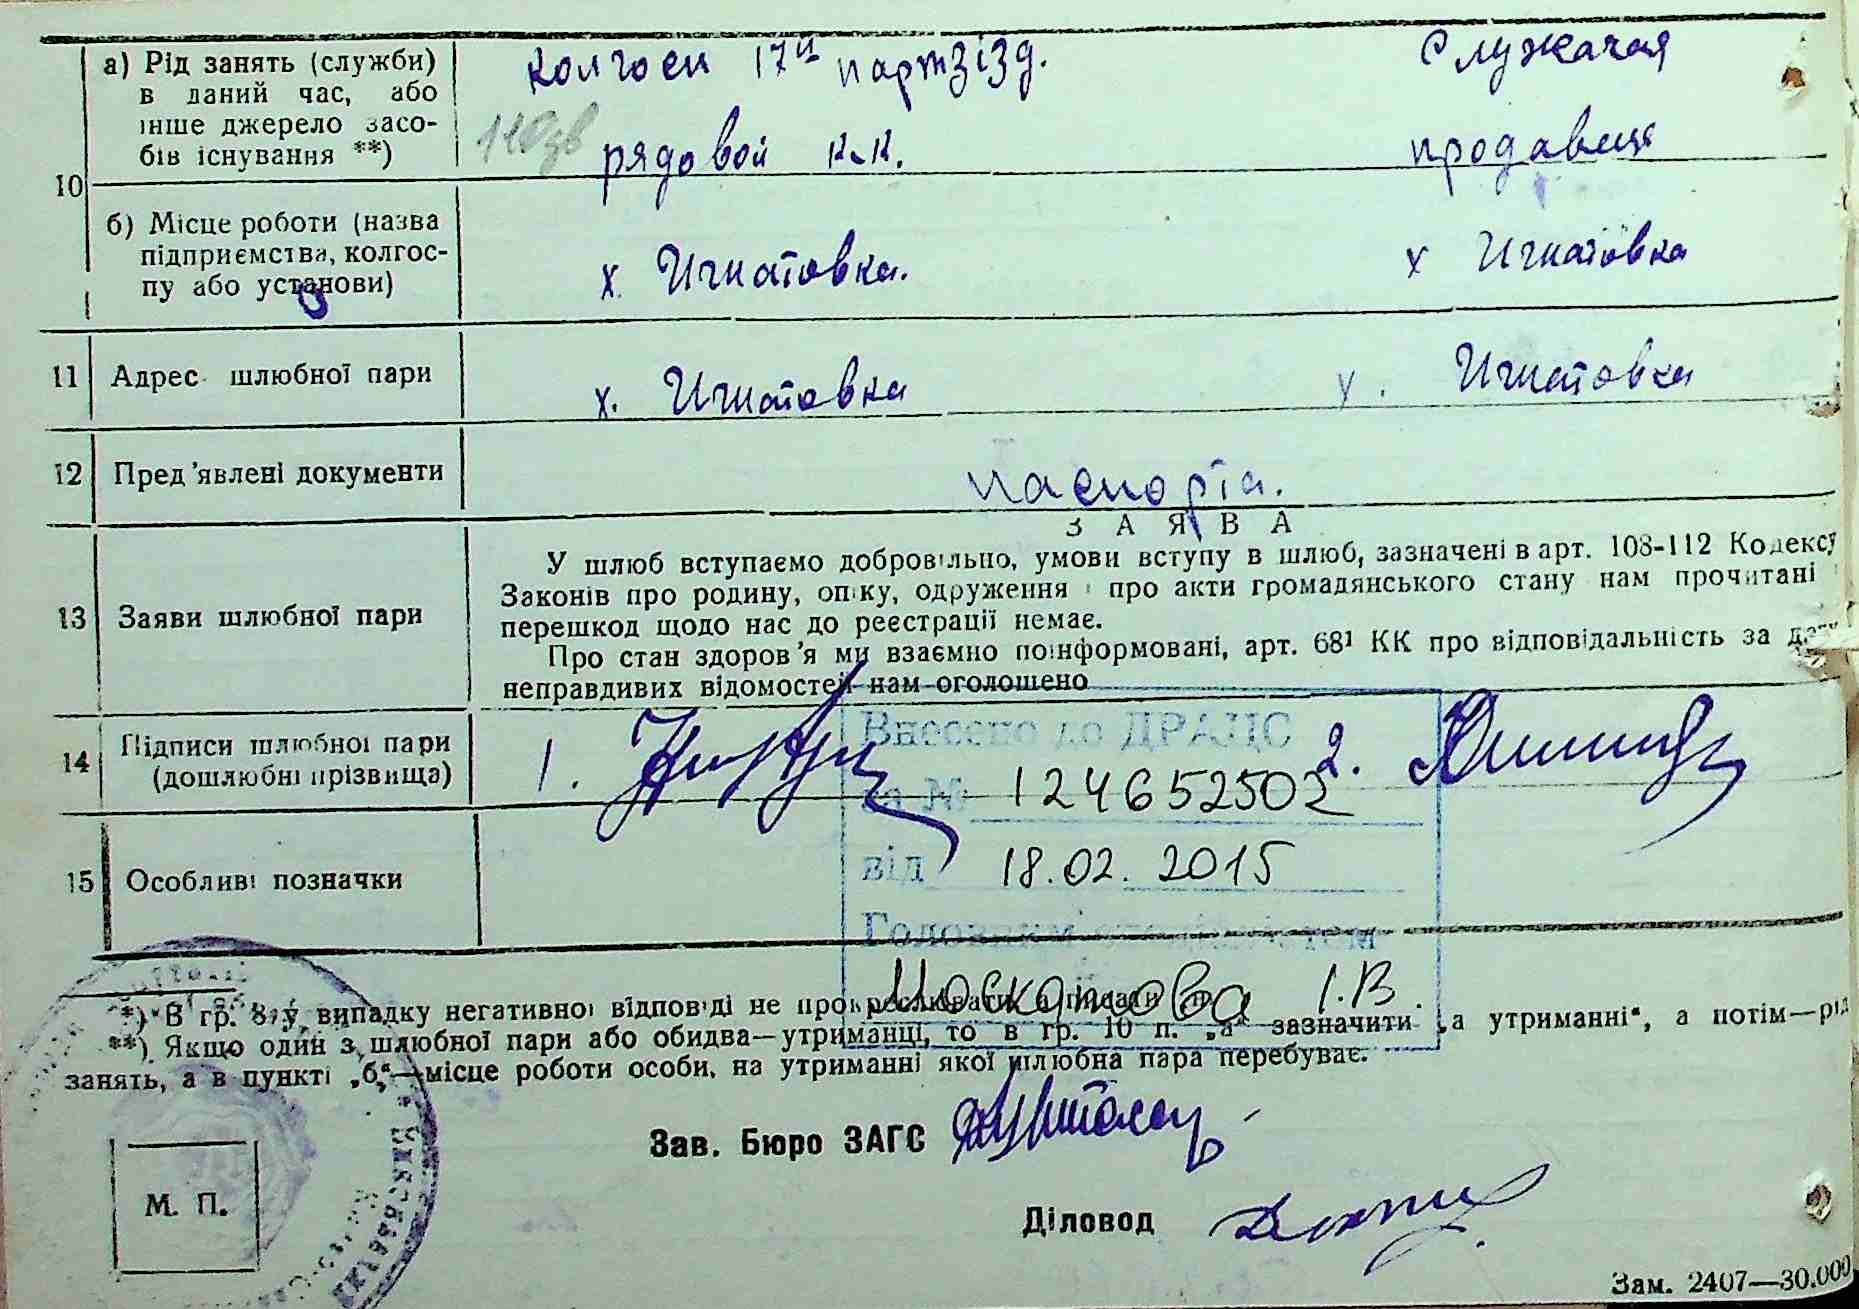 10
а) Рід занять (служби)
в даний час, або
інше джерело засо-
бів існування **)
Колгосп 17й партзізд.
рядовой к-к.
Служачая
продавец
б) Місце роботи (назва
підприємства, колгос-
пу або установи)
х. Игнатовка.
х Игнатовка
11 Адрес шлюбної пари
х. Игнатовка
х. Игнатовка
12 Пред'явлені документи
паспорта.
ЗАЯВА
13 Заяви шлюбної пари
У шлюб вступаємо добровільно, умови вступу в шлюб, зазначені в арт. 108-112 Кодексу
Законів про родину, опіку, одруження і про акти громадянського стану нам прочитані
перешкод щодо нас до реєстрації немає.
Про стан здоров'я ми взаємно поінформовані, арт. 68¹ КК про відповідальність за дачу
неправдивих відомостей нам оголошено
14 Підписи шлюбної пари
(дошлюбні прізвища)
1.
2.
Внесено до ДРАЦС
за № 124652502
від 18.02.2015
Головним спеціалістом
І.В.
15 Особливі позначки
*) В гр. 8 у випадку негативної відповіді не прокреслювати, а писати
**) Якщо один з шлюбної пари або обидва—утриманці, то в гр. 10 п. „а" зазначити „а утриманні", а потім—рід
занять, а в пункті „б"—місце роботи особи, на утриманні якої шлюбна пара перебуває.
Зав. Бюро ЗАГС
Діловод
М. П.
Зам. 2407—30.000